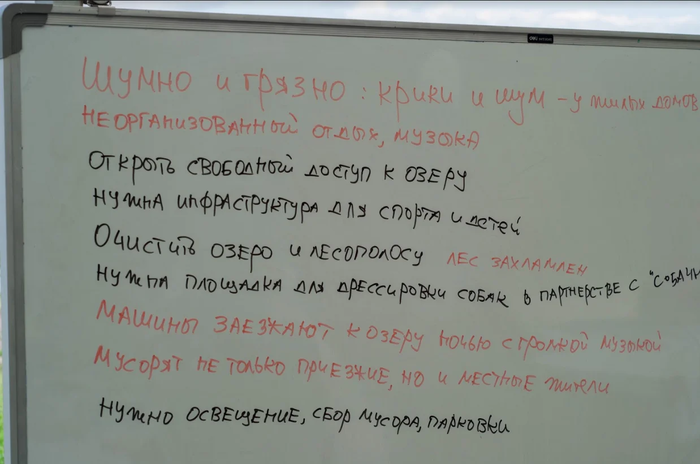 Шумно и грязно: крики и шум - у жилых домов
неорганизованной отдых, музыка
Открыть свободный доступ к озеру
Нужна инфраструктура для спорта и детей
Очистить озеро и лесополосу лес захламлен
Нужна площадка для дрессировки собак в партнерстве с "собачн
Машины заезжают к озеру ночью с громкой музыкой
Мусорят не только приезжие, но и местные жители
Нужно освещение, сбор мусора, парковки